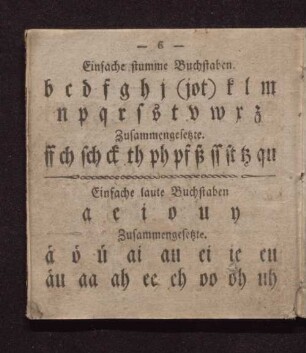 — 6 —
Einfache stumme Buchstaben.
b c d f g h j (jot) k l m
n p q r ſ s t v w x z
Zusammengesetzte.
ff ch sch ck th ph pf ß ſſ ſt tz qu
Einfache laute Buchstaben
a e i o u y
Zusammengesetzte.
ä ö ü ai au ei ie eu
äu aa ah ee eh oo oh uh